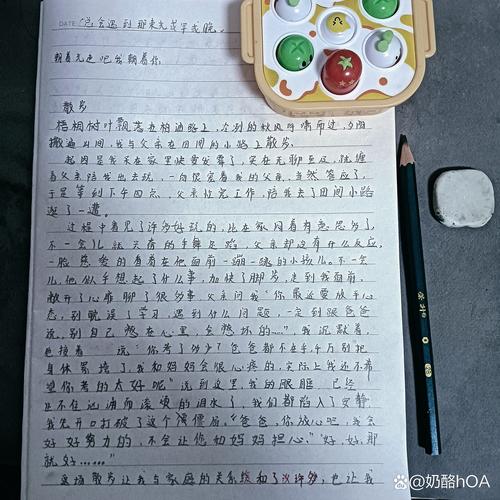 DATE 总会遇到那束光或早或晚。
朝着光走吧我朝着你
散步
梧桐树叶飘落在柏油路上,冷冽的秋风呼啸而过,夕阳
撒遍田间,我与父亲在田间的小路上散步。
起因是我在家里快要发霉了,实在无聊至及,就缠
着父亲陪我出去玩,一向很宠着我的父亲,当然答应了,
于是等到下午四点,父亲忙完工作,陪我去了田间小路
逛了一遭。
过程中看见了许多好玩的,比在家闷着有意思多了,
不一会儿就欢喜的手舞足蹈,父亲却没有什么反应,
一脸慈爱的看着在他面前一蹦一跳的小孩儿。不一会
儿,他似乎想起了什么事,加快了脚步,走到我面前,
敞开了心扉聊了很多事,父亲问我"你最近要放平心
态,别耽误了学习,遇到什么问题,一定到跟爸爸
说,别自己憋在心里,会憋坏的……",我沉默着,
他接着 说:"你考了多少了爸爸都不在乎,千万别把
身体累垮了,我和妈妈会很心疼的,实际上我还不希
望你考的太好呢"说到这里,我的眼眶 已经
止不住的涌雨滚烫的泪水了,我们都陷入了安静,
我先开口打破了这个僵僵局,"爸爸,你放心吧,我会
好好努力的,不会让你和妈妈担心","好,好,那
就好……"
这场散步让我与家庭的关系缓和了许多,也让我
@奶酪hOA